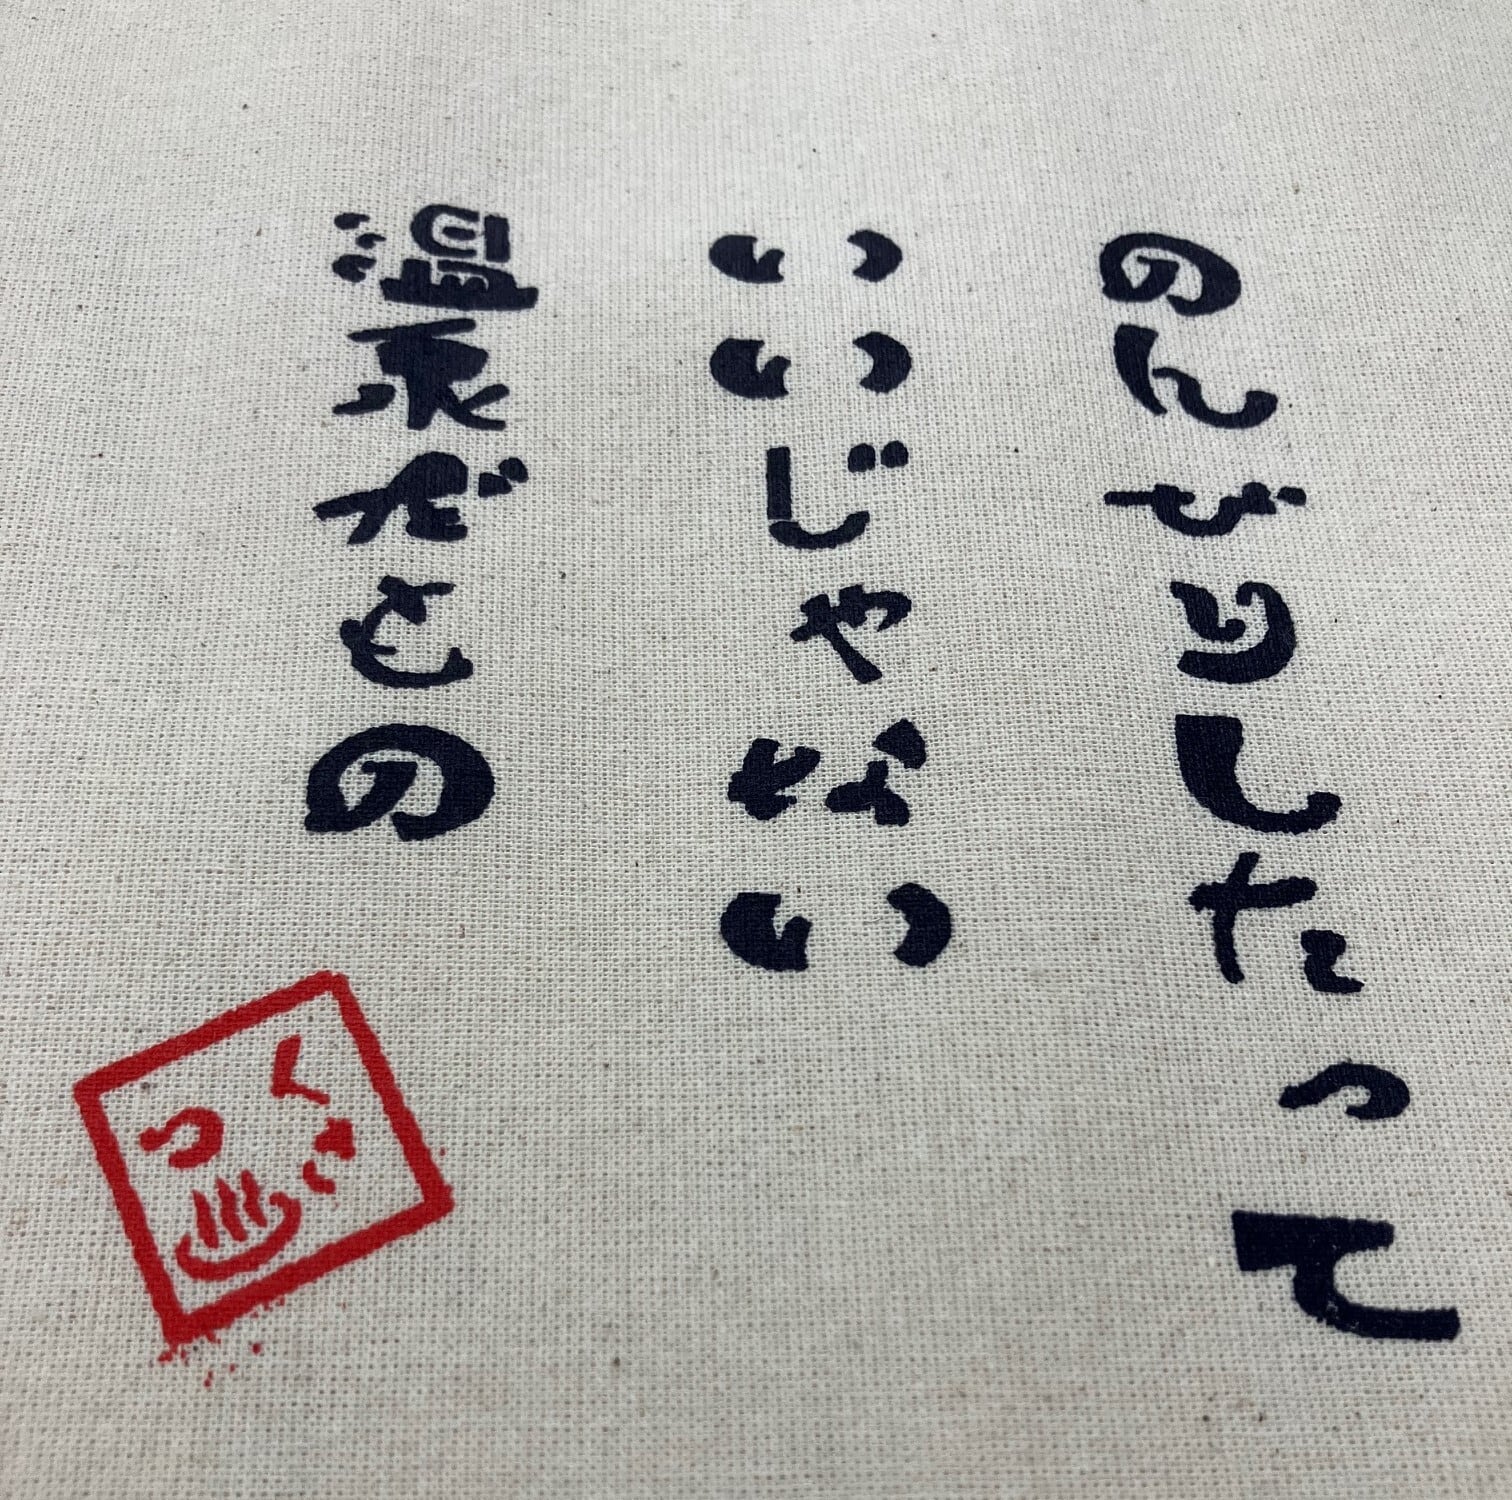 のんびりしたって
いいじゃない
温泉だもの
くさ
つ♨